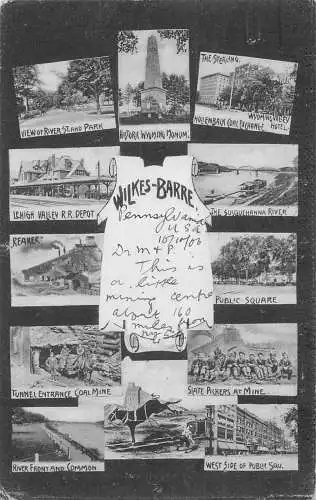 VIEW OF RIVER ST. AND PARK
HISTORIC WYOMING MONUM.
THE STERLING
HOLLENBACK COAL EXCHANGE
WYOMING VALLEY
HOTEL
LEHIGH VALLEY R.R. DEPOT
WILKES-BARRE,
Pennsylvania
USA
THE SUSQUEHANNA RIVER
BREAKER
Dr M & P.
This is
a little
mining centre
about 160
miles from
PUBLIC SQUARE
TUNNEL ENTRANCE COAL MINE
SLATE PICKERS AT MINE
RIVER FRONT AND COMMON
WEST SIDE OF PUBLIC SQU.